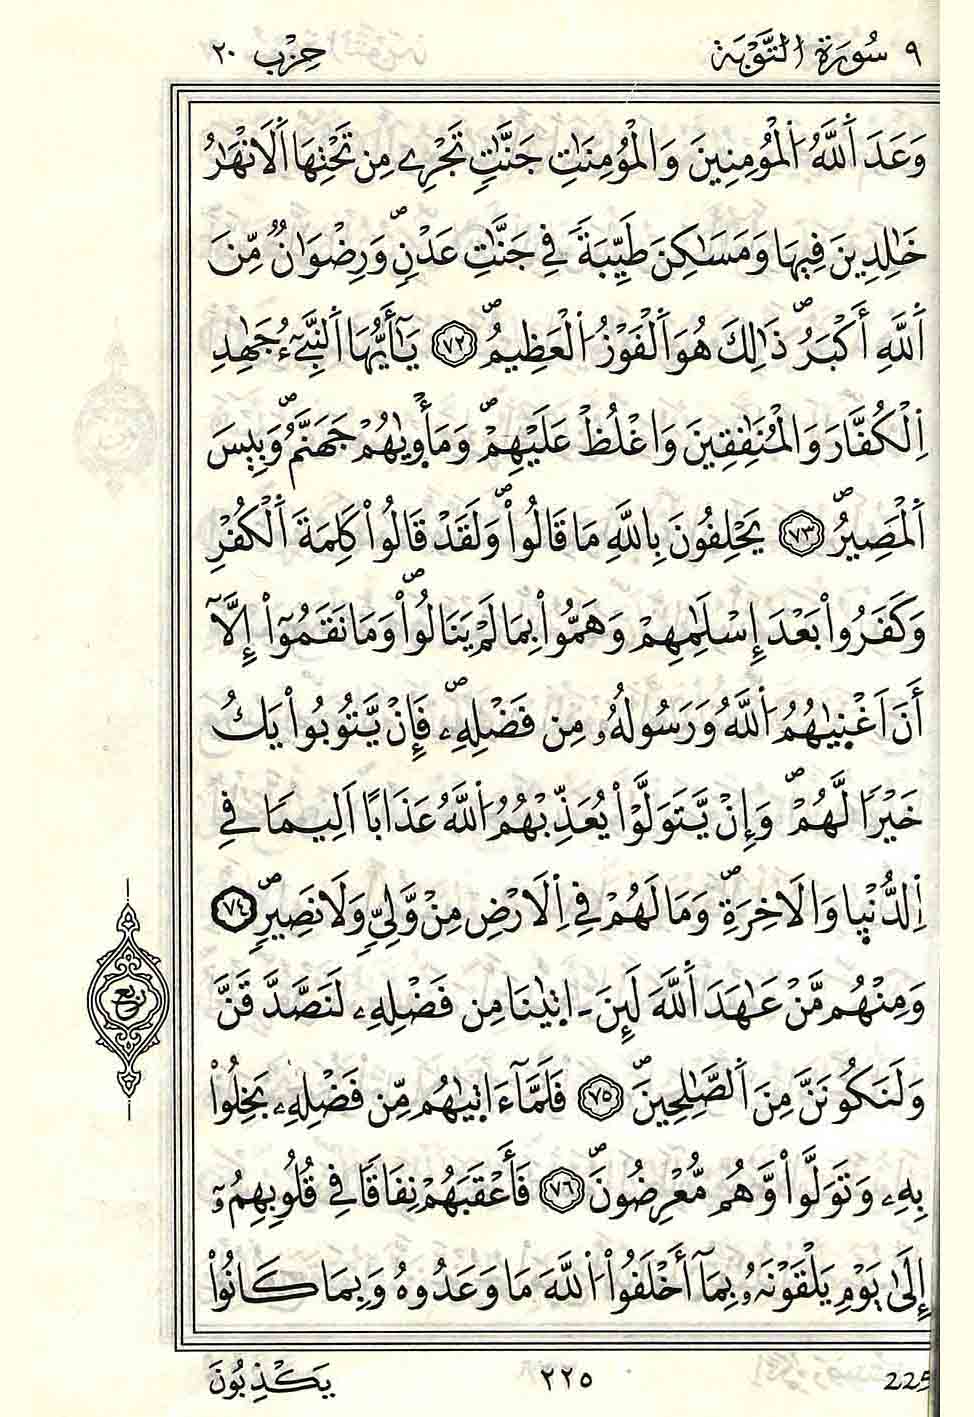 ٩ سُورَةُ التَّوْبَة
حِزْب ٢٠
وَعَدَ اَ۬للَّهُ اُ۬لْمُؤْمِنِينَ وَالْمُؤْمِنَٰتِ جَنَّٰتٖ تَجْرِے مِن تَحْتِهَا اَ۬لَانْهَٰرُ
خَٰلِدِينَ فِيهَا وَمَسَٰكِنَ طَيِّبَةٗ فِے جَنَّٰتِ عَدْنٖۖ وَرِضْوَٰنٞ مِّنَ
اَ۬للَّهِ أَكْبَرُۖ ذَٰلِكَ هُوَ اَ۬لْفَوْزُ اُ۬لْعَظِيمُۖ ٧٢ يَٰٓأَيُّهَا اَ۬لنَّبِےٓءُ جَٰهِدِ
اِ۬لْكُفَّارَ وَالْمُنَٰفِقِينَ وَاغْلُظْ عَلَيْهِمْۖ وَمَأْو۪يٰهُمْ جَهَنَّمُۖ وَبِيسَ
اَ۬لْمَصِيرُۖ ٧٣ يَحْلِفُونَ بِاللَّهِ مَا قَالُواْۖ وَلَقَدْ قَالُواْ كَلِمَةَ اَ۬لْكُفْرِ
وَكَفَرُواْ بَعْدَ إِسْلَٰمِهِمْ وَهَمُّواْ بِمَا لَمْ يَنَالُواْۖ وَمَا نَقَمُوٓاْ إِلَّآ
أَنَ اَغْن۪يٰهُمُ اُ۬للَّهُ وَرَسُولُهُۥ مِن فَضْلِهِۦۖ فَإِنْ يَّتُوبُواْ يَكُ
خَيْراٗ لَّهُمْۖ وَإِنْ يَّتَوَلَّوْاْ يُعَذِّبْهُمُ اُ۬للَّهُ عَذَاباً اَلِيماٗ فِے
اِ۬لدُّنْي۪ا وَالَاخِرَةِۖ وَمَا لَهُمْ فِے اِ۬لَارْضِ مِنْ وَّلِيّٖ وَلَا نَصِيرٖۖ ٧٤
وَمِنْهُم مَّنْ عَٰهَدَ اَ۬للَّهَ لَئِنَ اٰت۪يٰنَا مِن فَضْلِهِۦ لَنَصَّدَّقَنَّ
ربع
وَلَنَكُونَنَّ مِنَ اَ۬لصَّٰلِحِينَۖ ٧٥ فَلَمَّآ ءَات۪يٰهُم مِّن فَضْلِهِۦ بَخِلُواْ
بِهِۦ وَتَوَلَّواْ وَّهُم مُّعْرِضُونَۖ ٧٦ فَأَعْقَبَهُمْ نِفَاقاٗ فِے قُلُوبِهِمُۥٓ
إِلَىٰ يَوْمِ يَلْقَوْنَهُۥ بِمَآ أَخْلَفُواْ اُ۬للَّهَ مَا وَعَدُوهُ وَبِمَا كَانُواْ
يَكْذِبُونَ
٢٢٥
225